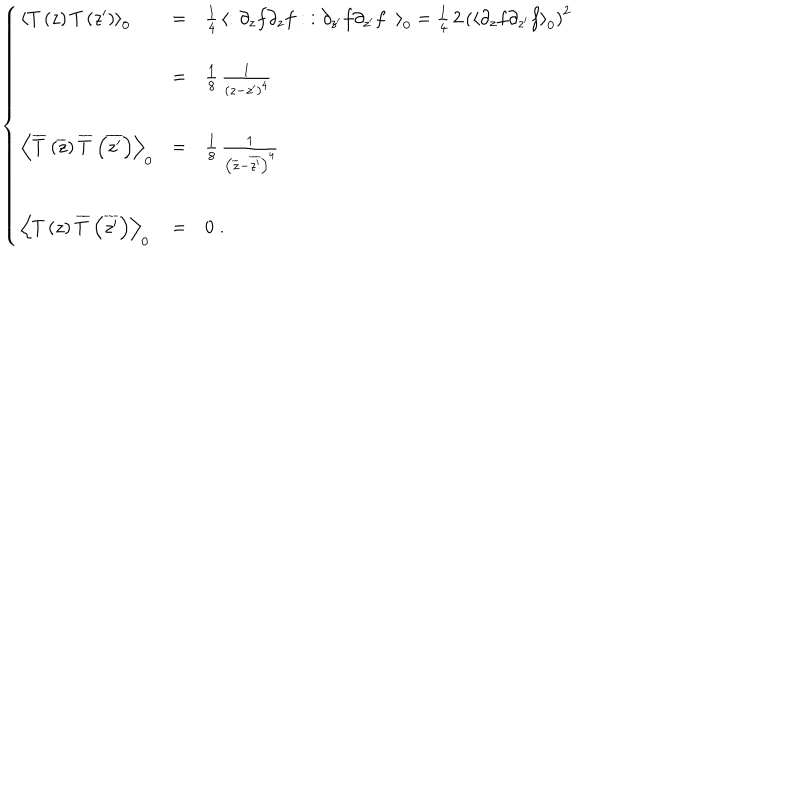 ⟨T (z) T (z′)⟩₀ = 1/4 ⟨: ∂_z f ∂_z f : : ∂_z′ f ∂_z′ f :⟩₀ = 1/4 2 (⟨∂_z f ∂_z′ f⟩₀)²
= 1/8 1/(z−z′)⁴
⟨T̅ (z̅) T̅ (z̅′)⟩₀ = 1/8 1/(z̅−z̅′)⁴
⟨T (z) T̅ (z̅′)⟩₀ = 0 .